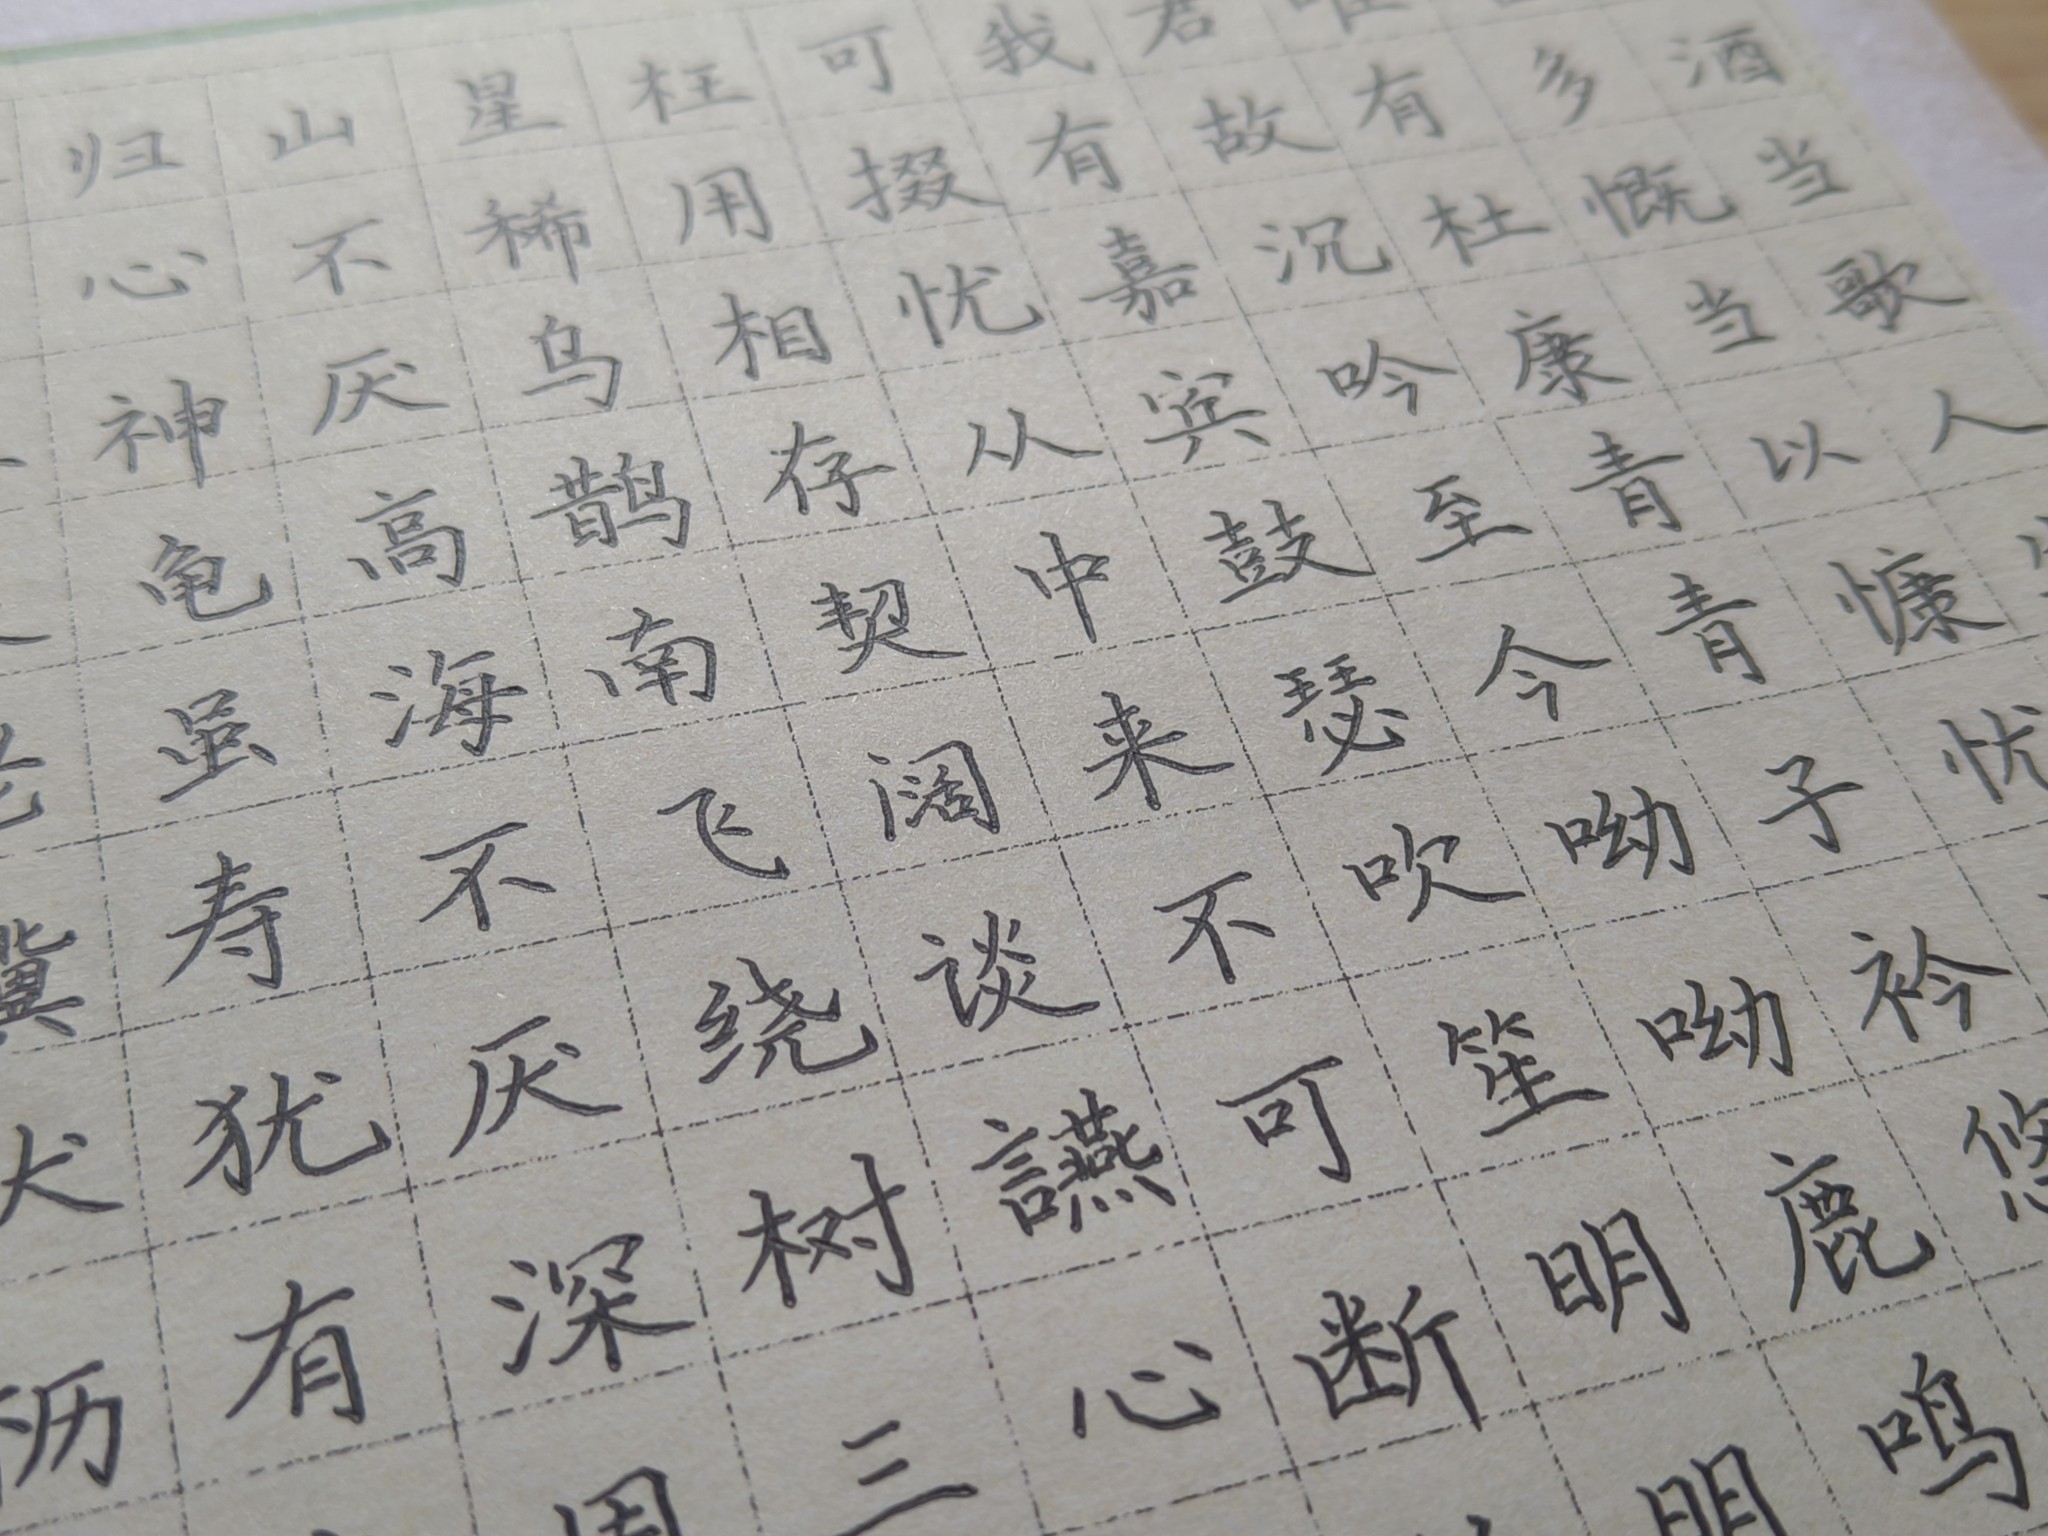 酒当歌人生
多慨当以慷忧
唯有杜康青青子衿悠
君故沉吟至今呦呦鹿鸣
我有嘉宾鼓瑟吹笙明明
可掇忧从中来不可断
枉用相存契阔谈讌心
星稀乌鹊南飞绕树三
山不厌高海不厌深周
归心神龟虽寿犹有
老骥伏枥